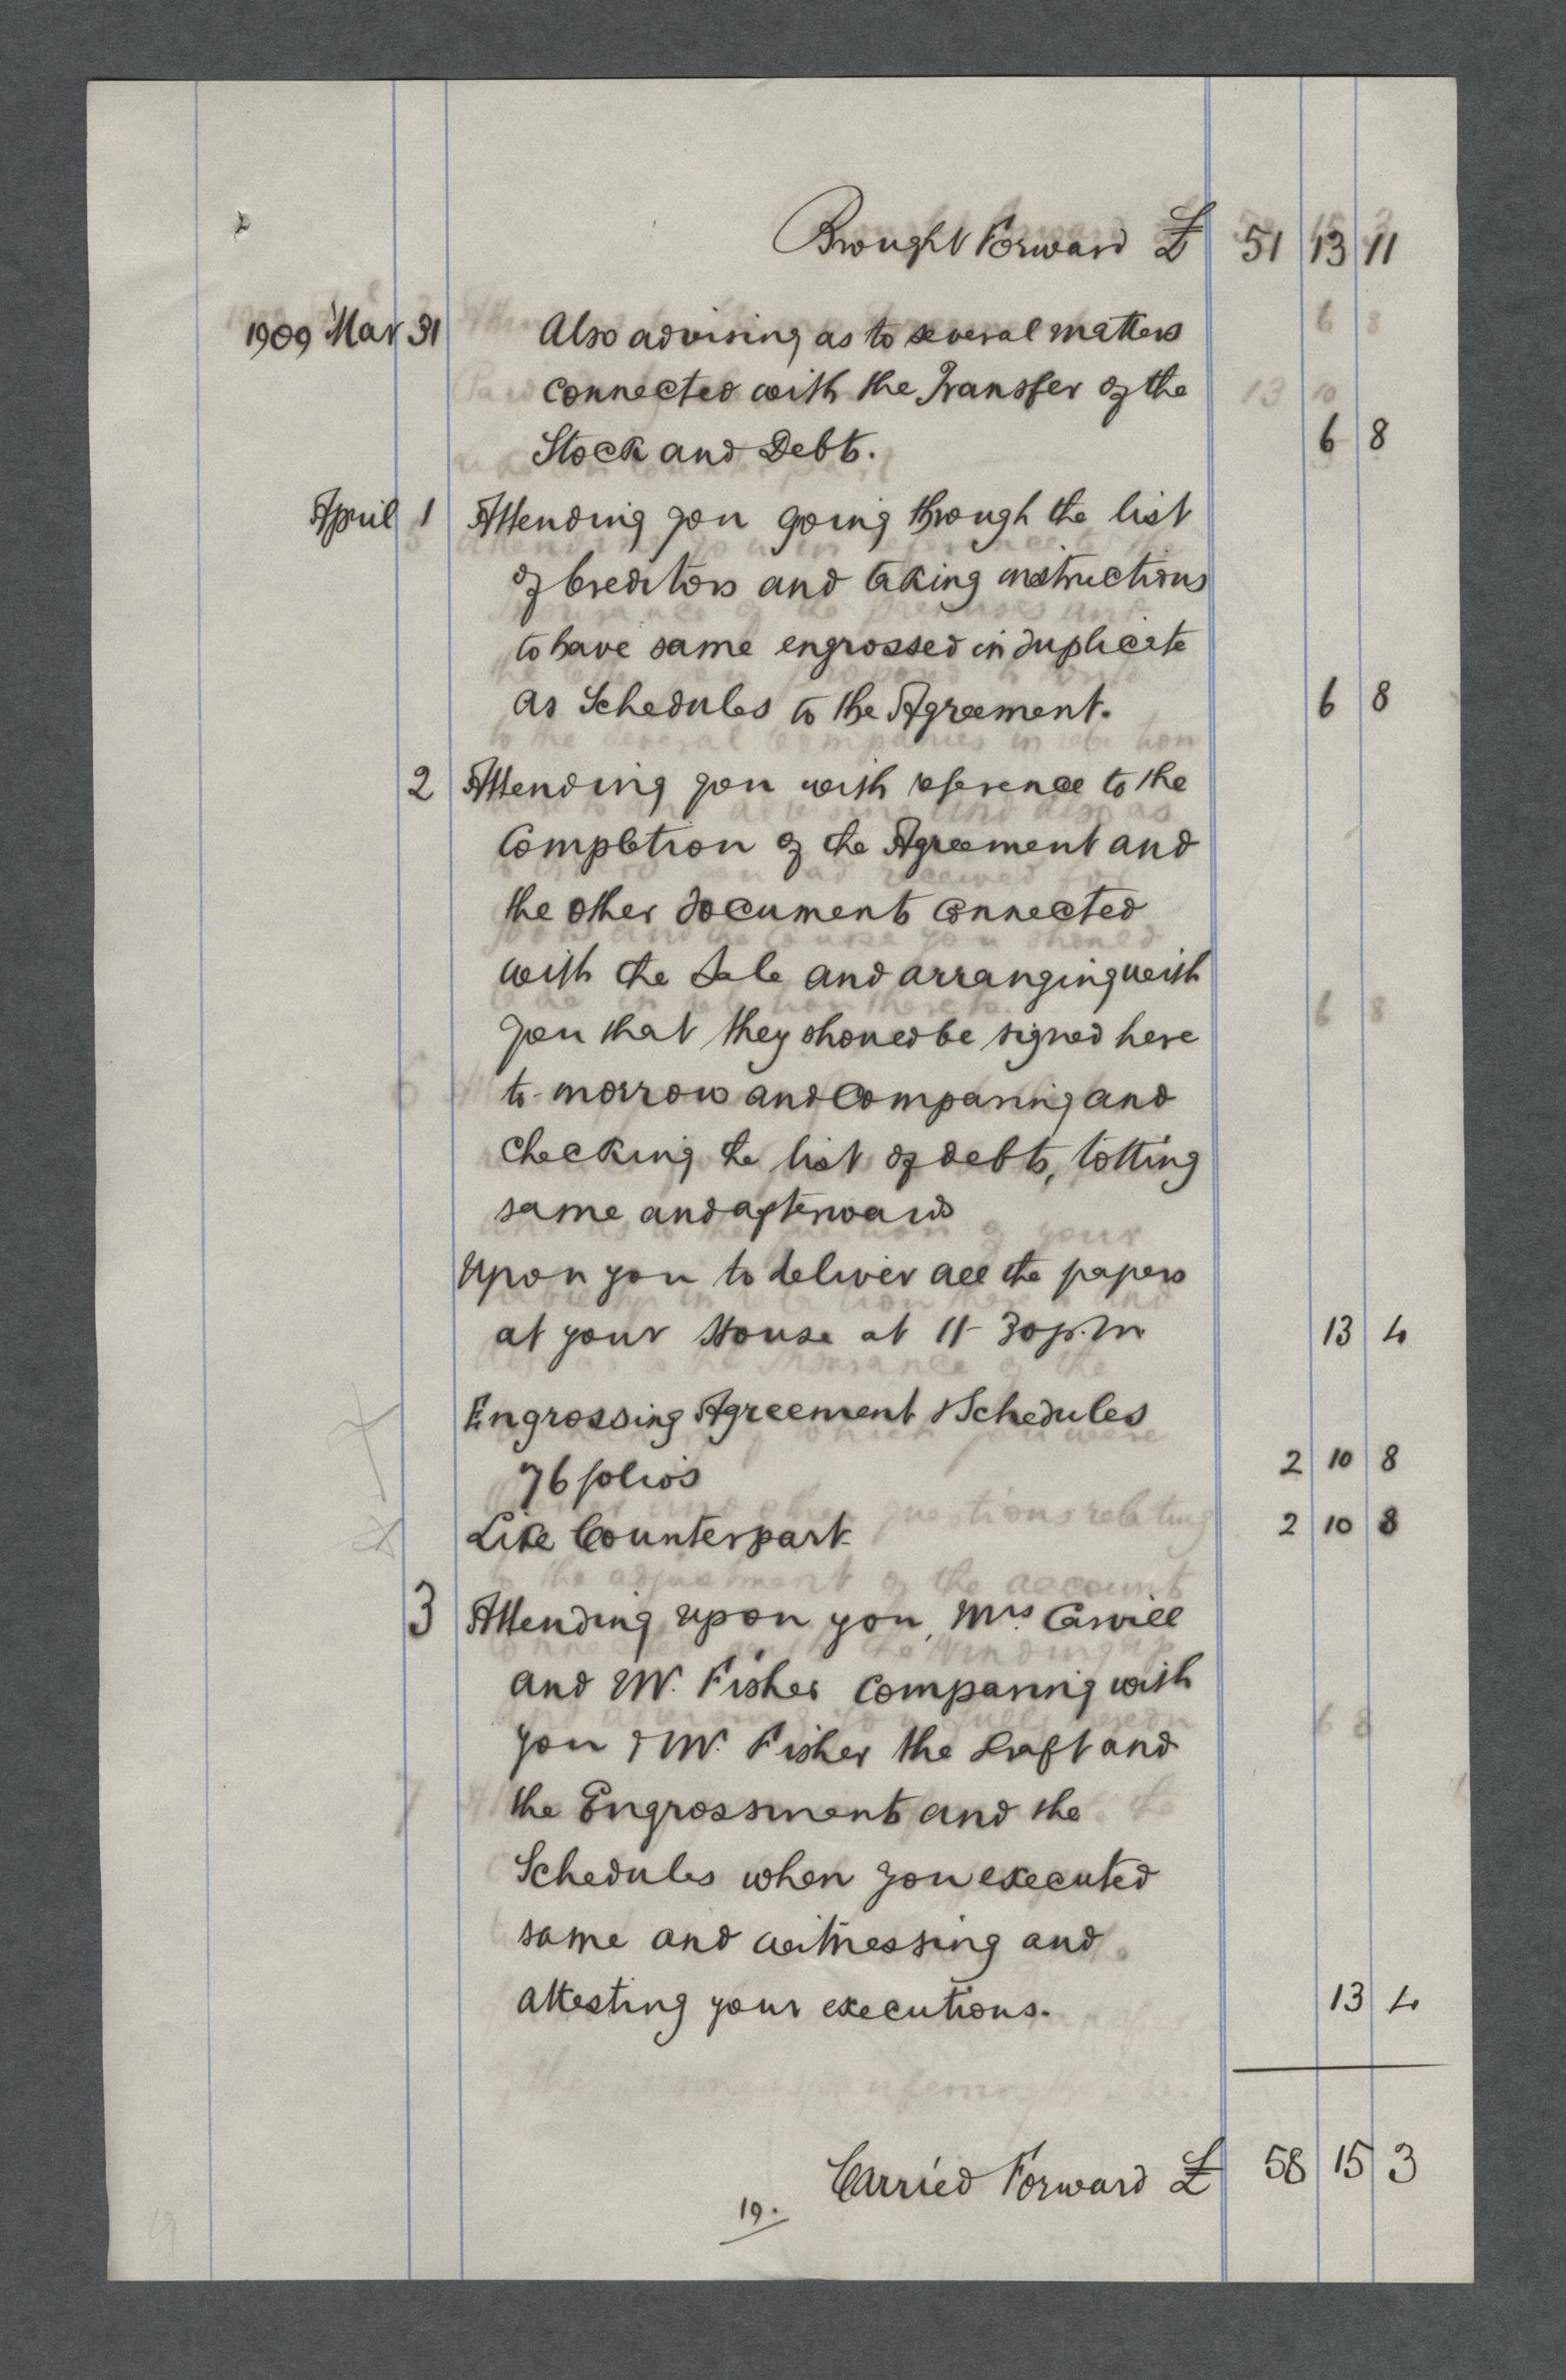 Brought Forward £ 51 13 11
1909 Mar 31 Also advising as to several matters
connected with the Transfer of the
Stock and Debts. 6 8
April 1 Attending you going through the list
of Creditors and taking instructions
to have same engrossed in duplicate
as Schedules to the Agreement. 6 8
2 Attending you with reference to the
Completion of the Agreement and
the other documents connected
with the Sale and arranging with
you that they should be signed here
to-morrow and Comparing and
checking the list of debts, totting
same and afterwards
Upon you to deliver all the papers
at your House at 11-30 p.m. 13 4
Engrossing Agreement & Schedules
76 folios 2 10 8
Like Counterpart 2 10 8
3 Attending upon you, Mrs. Carvill
and Mr. Fisher Comparing with
you & Mr. Fisher the draft and
the Engrossments and the
Schedules when you executed
same and witnessing and
attesting your executions. 13 4
Carried Forward £ 58 15 3
19.